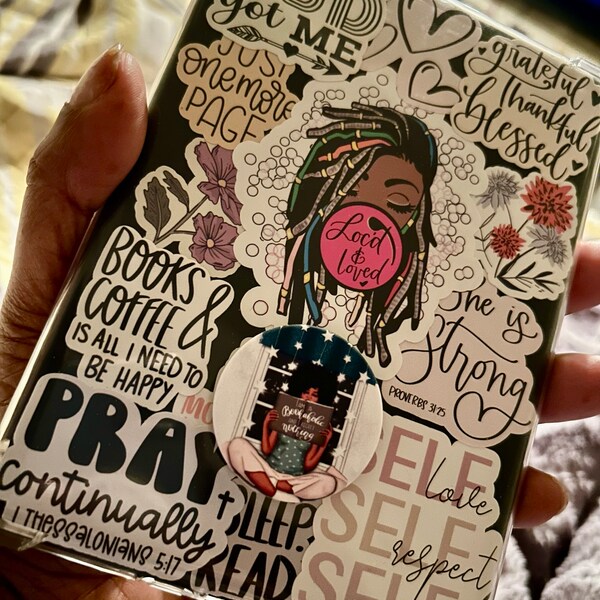 got ME
JUST
one more
PAGE
grateful
thankful
blessed
Loc'd
&
loved
BOOKS
& COFFEE
IS ALL I NEED TO
BE HAPPY
She is
Strong
PROVERBS 31:25
I AM A
Bookaholic
nothing
PRAY
continually
1 THESSALONIANS 5:17
SLEEP.
READ
SELF
love
SELF
respect
SELF